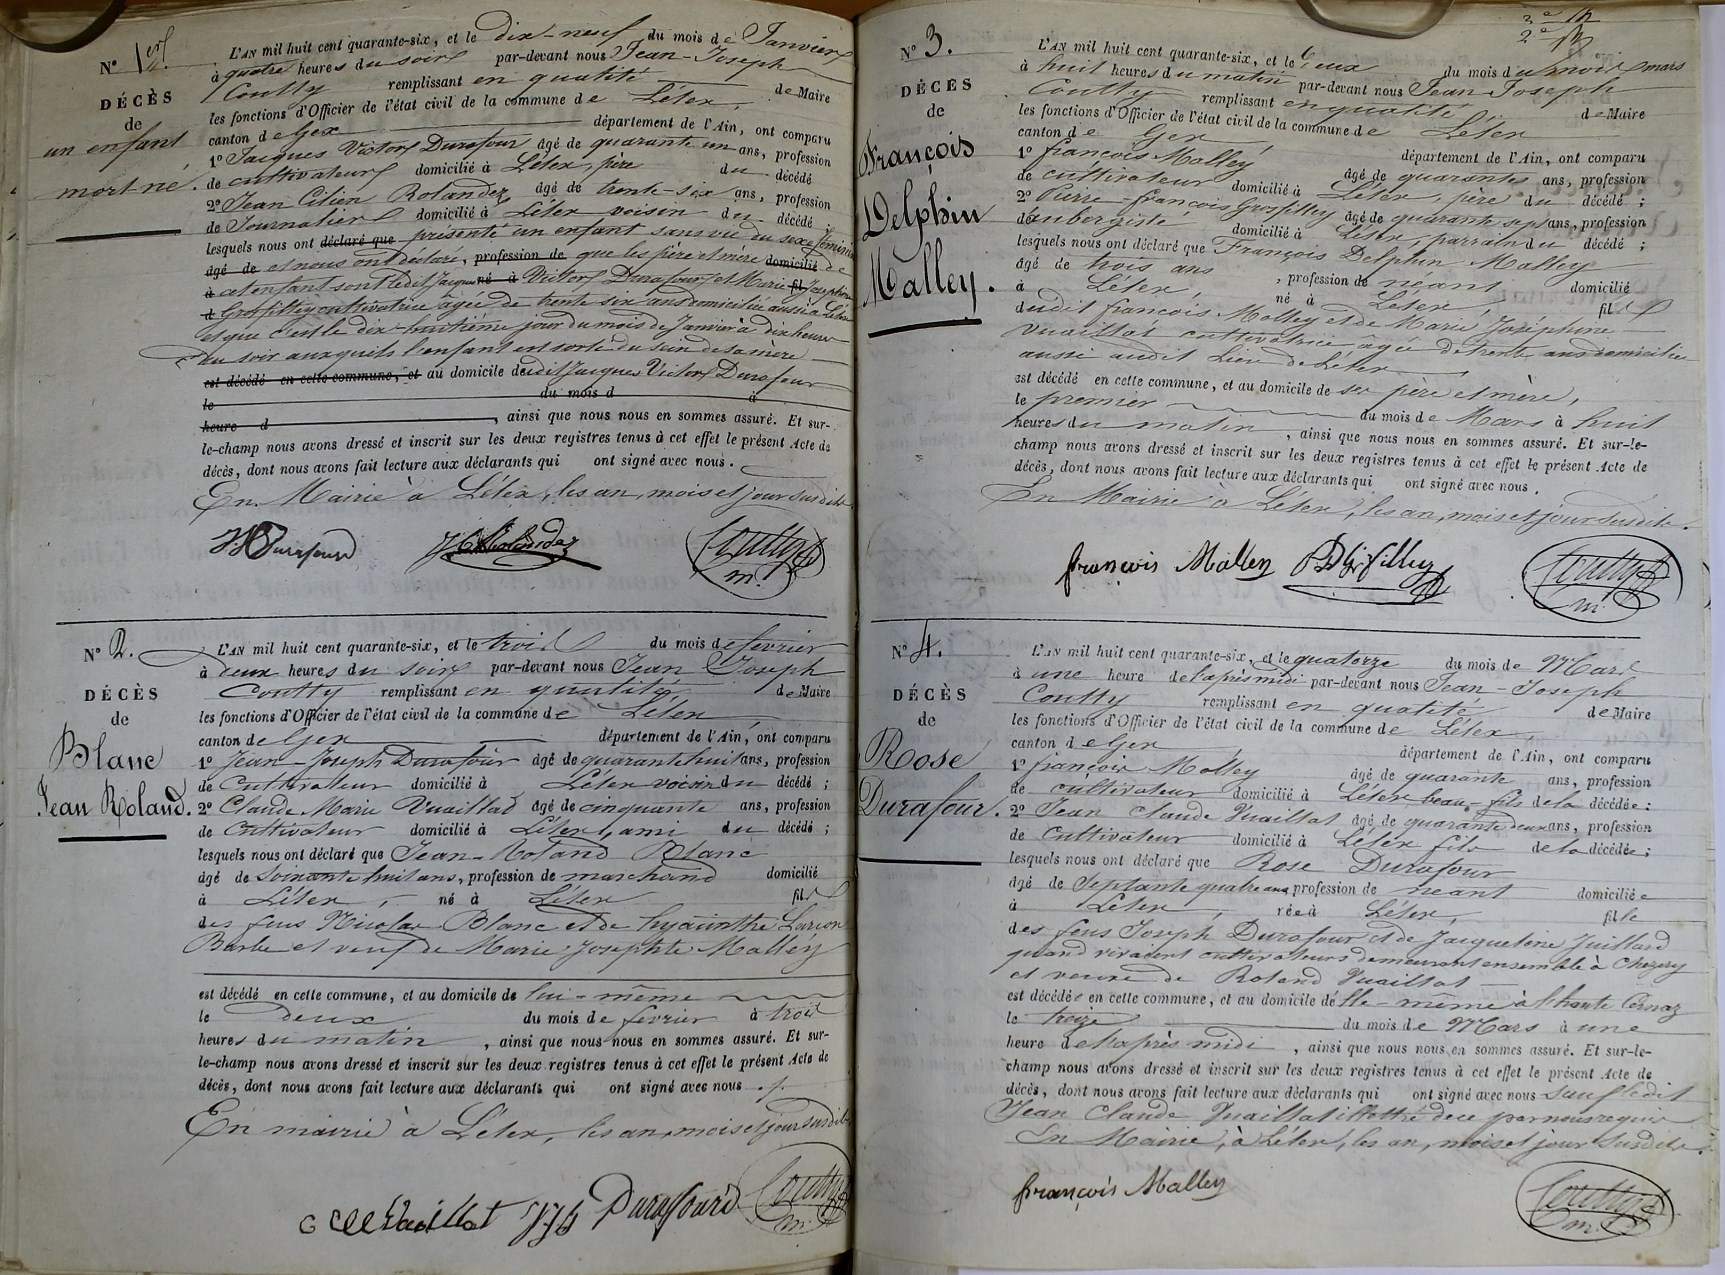 N° 1er.
DÉCÈS
de
un enfant
mort-né.
L'AN mil huit cent quarante-six, et le dix-neuf du mois de Janvier
à quatre heures du soir par-devant nous Jean-Joseph
Coutty remplissant en qualité de Maire
les fonctions d'Officier de l'état civil de la commune de Lélex,
canton de Gex département de l'Ain, ont comparu
1° Jacques Victor Durafour âgé de quarante un ans, profession
de cultivateur domicilié à Lélex, père du décédé
2° Jean Rolandez âgé de trente-six ans, profession
de Journalier domicilié à Lélex voisin du décédé ;
lesquels nous ont déclaré que présenté un enfant sans vie du sexe féminin
âgé de et nous ont déclaré, profession de que les père et mère domicilié de
à cet enfant sont ledit Jacques né à Victor Durafour et Marie fil Josephine
d Grosfilley cultivatrice âgée de trente six ans domiciliée aussi à Lélex
et que c'est le dix-huitième jour du mois de Janvier à dix heures
du soir auxquels l'enfant est sorti du sein de sa mère
est décédé en cette commune, et au domicile dudit Jacques Victor Durafour
le du mois d à
heure d , ainsi que nous nous en sommes assuré. Et sur-
le-champ nous avons dressé et inscrit sur les deux registres tenus à cet effet le présent Acte de
décès, dont nous avons fait lecture aux déclarants qui ont signé avec nous.
En Mairie à Lélex, les an, mois et jour susdits
Durafour Rolandez Coutty m.
N° 2.
DÉCÈS
de
Blanc
Jean Roland.
L'AN mil huit cent quarante-six, et le trois du mois de février
à deux heures du soir par-devant nous Jean Joseph
Coutty remplissant en qualité de Maire
les fonctions d'Officier de l'état civil de la commune de Lélex
canton de Gex département de l'Ain, ont comparu
1° Jean-Joseph Durafour âgé de quarante huit ans, profession
de Cultivateur domicilié à Lélex voisin du décédé ;
2° Claude Marie Vuaillat âgé de cinquante ans, profession
de Cultivateur domicilié à Lélex, ami du décédé ;
lesquels nous ont déclaré que Jean-Roland Blanc
âgé de Soixante huit ans, profession de marchand domicilié
à Lélex, né à Lélex fils
des feus Nicolas Blanc et de hyacinthe
Barbe et veuf de Marie Josephte Malley
est décédé en cette commune, et au domicile de lui-même
le deux du mois de février à trois
heures du matin, ainsi que nous nous en sommes assuré. Et sur-
le-champ nous avons dressé et inscrit sur les deux registres tenus à cet effet le présent Acte de
décès, dont nous avons fait lecture aux déclarants qui ont signé avec nous
En mairie à Lélex, les an, mois et jour susdits
Vuaillat JJh Durafour Coutty m.
N° 3.
DÉCÈS
de
François
Delphin
Malley.
L'AN mil huit cent quarante-six, et le deux du mois mars
à huit heures du matin par-devant nous Jean Joseph
Coutty remplissant en qualité de Maire
les fonctions d'Officier de l'état civil de la commune de Lélex
canton de Gex département de l'Ain, ont comparu
1° françois Malley âgé de quarante ans, profession
de cultivateur domicilié à Lélex, père du décédé ;
2° Pierre-françois Grosfilley âgé de quarante sept ans, profession
d'aubergiste domicilié à Lélex, parrain du décédé ;
lesquels nous ont déclaré que François Delphin Malley
âgé de trois ans, profession de néant domicilié
à Lélex, né à Lélex, fils
dudit françois Malley et de Marie Joséphine
Vuaillat cultivatrice agée de trente ans domiciliée
aussi audit lieu de Lélex
est décédé en cette commune, et au domicile de ses père et mère,
le premier du mois de Mars à huit
heures du matin, ainsi que nous nous en sommes assuré. Et sur-le-
champ nous avons dressé et inscrit sur les deux registres tenus à cet effet le présent Acte de
décès, dont nous avons fait lecture aux déclarants qui ont signé avec nous.
En Mairie à Lélex, les an, mois et jour susdits.
françois Malley Grosfilley Coutty m.
N° 4.
DÉCÈS
de
Rose
Durafour.
L'AN mil huit cent quarante-six, et le quatorze du mois de Mars
à une heure de l'après midi par-devant nous Jean-Joseph
Coutty remplissant en qualité de Maire
les fonctions d'Officier de l'état civil de la commune de Lélex,
canton de Gex département de l'Ain, ont comparu
1° françois Malley âgé de quarante ans, profession
de cultivateur domicilié à Lélex beau-fils de la décédée :
2° Jean Claude Vuaillat âgé de quarante deux ans, profession
de Cultivateur domicilié à Lélex fils de la décédée ;
lesquels nous ont déclaré que Rose Durafour
âgé de Septante quatre ans profession de néant domiciliée
à Lélex, née à Lélex, fille
des feus Joseph Durafour et de Jacqueline Juillard
quand vivaient cultivateurs demeurant ensemble à Chezery
et veuve de Roland Vuaillat
est décédée en cette commune, et au domicile d'elle-même à
le treize du mois de Mars à une
heure de l'après midi, ainsi que nous nous en sommes assuré. Et sur-le-
champ nous avons dressé et inscrit sur les deux registres tenus à cet effet le présent Acte de
décès, dont nous avons fait lecture aux déclarants qui ont signé avec nous sauf ledit
Jean Claude Vuaillat illettré de ce par nous requis
En Mairie, à Lélex, les an, mois et jour susdits.
françois Malley Coutty m.